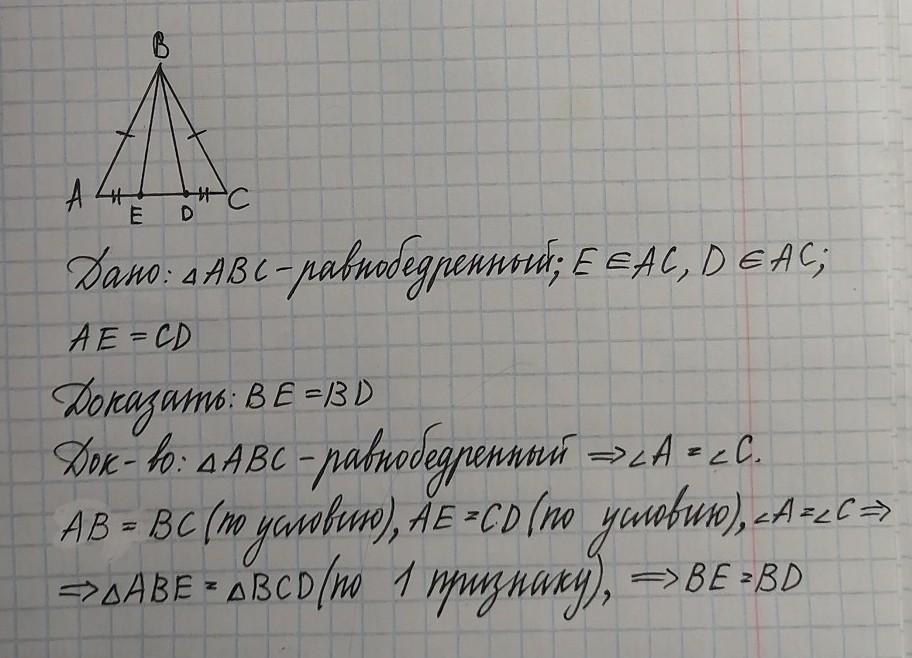 B
A E D C
Дано: △ABC - равнобедренный; E ∈ AC, D ∈ AC;
AE = CD
Доказать: BE = BD
Док-во: △ABC - равнобедренный ⇒ ∠A = ∠C.
AB = BC (по условию), AE = CD (по условию), ∠A = ∠C ⇒
⇒ △ABE = △BCD (по 1 признаку), ⇒ BE = BD